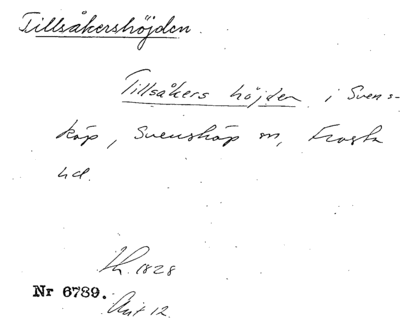 Tillsåkershöjden.
Tillsåkers höjden i Svens-
köp, Svensköp sn, Frosta
hd.
1828
Nr 6789.
12.